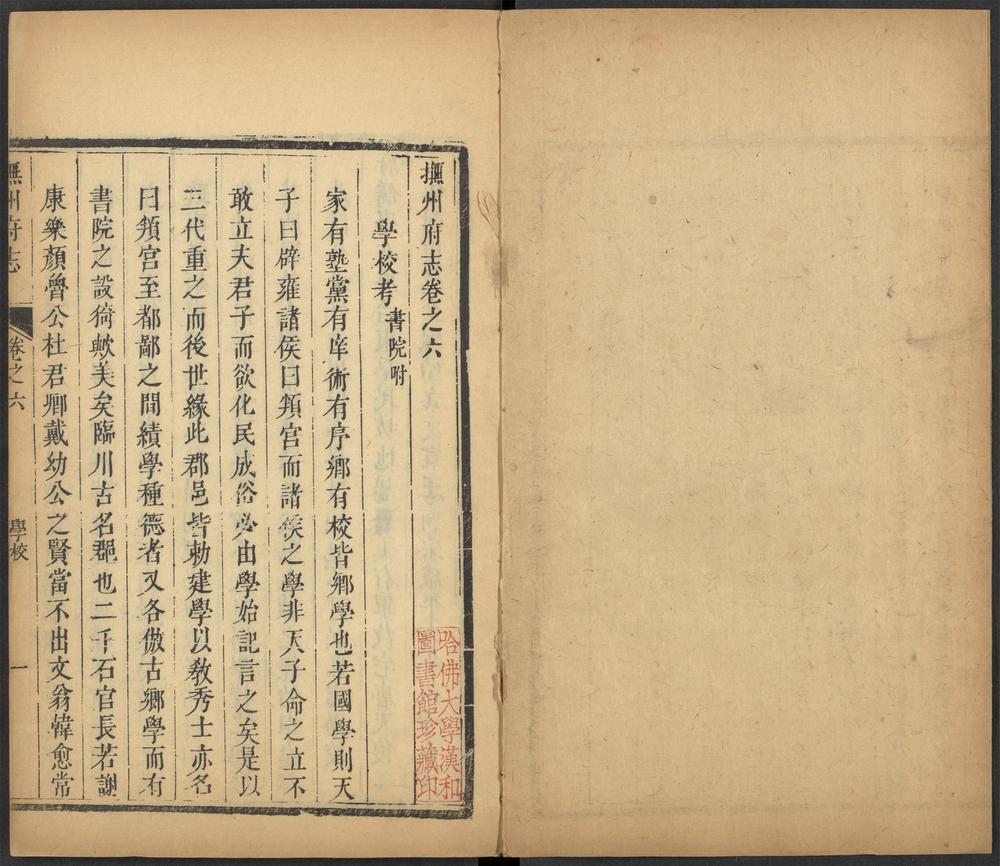 撫州府志卷之六
學校考 書院附
家有塾黨有庠術有序鄉有校皆鄉學也若國學則天
子曰辟雍諸侯曰頖宮而諸侯之學非天子命之立不
敢立夫君子而欲化民成俗必由學始記言之矣是以
三代重之而後世緣此郡邑皆勅建學以敎秀士亦名
曰頖宮至都鄙之間績學種德者又各倣古鄉學而有
書院之設猗歟美矣臨川古名郡也二千石官長若謝
康樂顏魯公杜君卿戴幼公之賢當不出文翁韓愈常
撫州府志 卷之六 學校 一
哈佛大學漢和
圖書館珍藏印